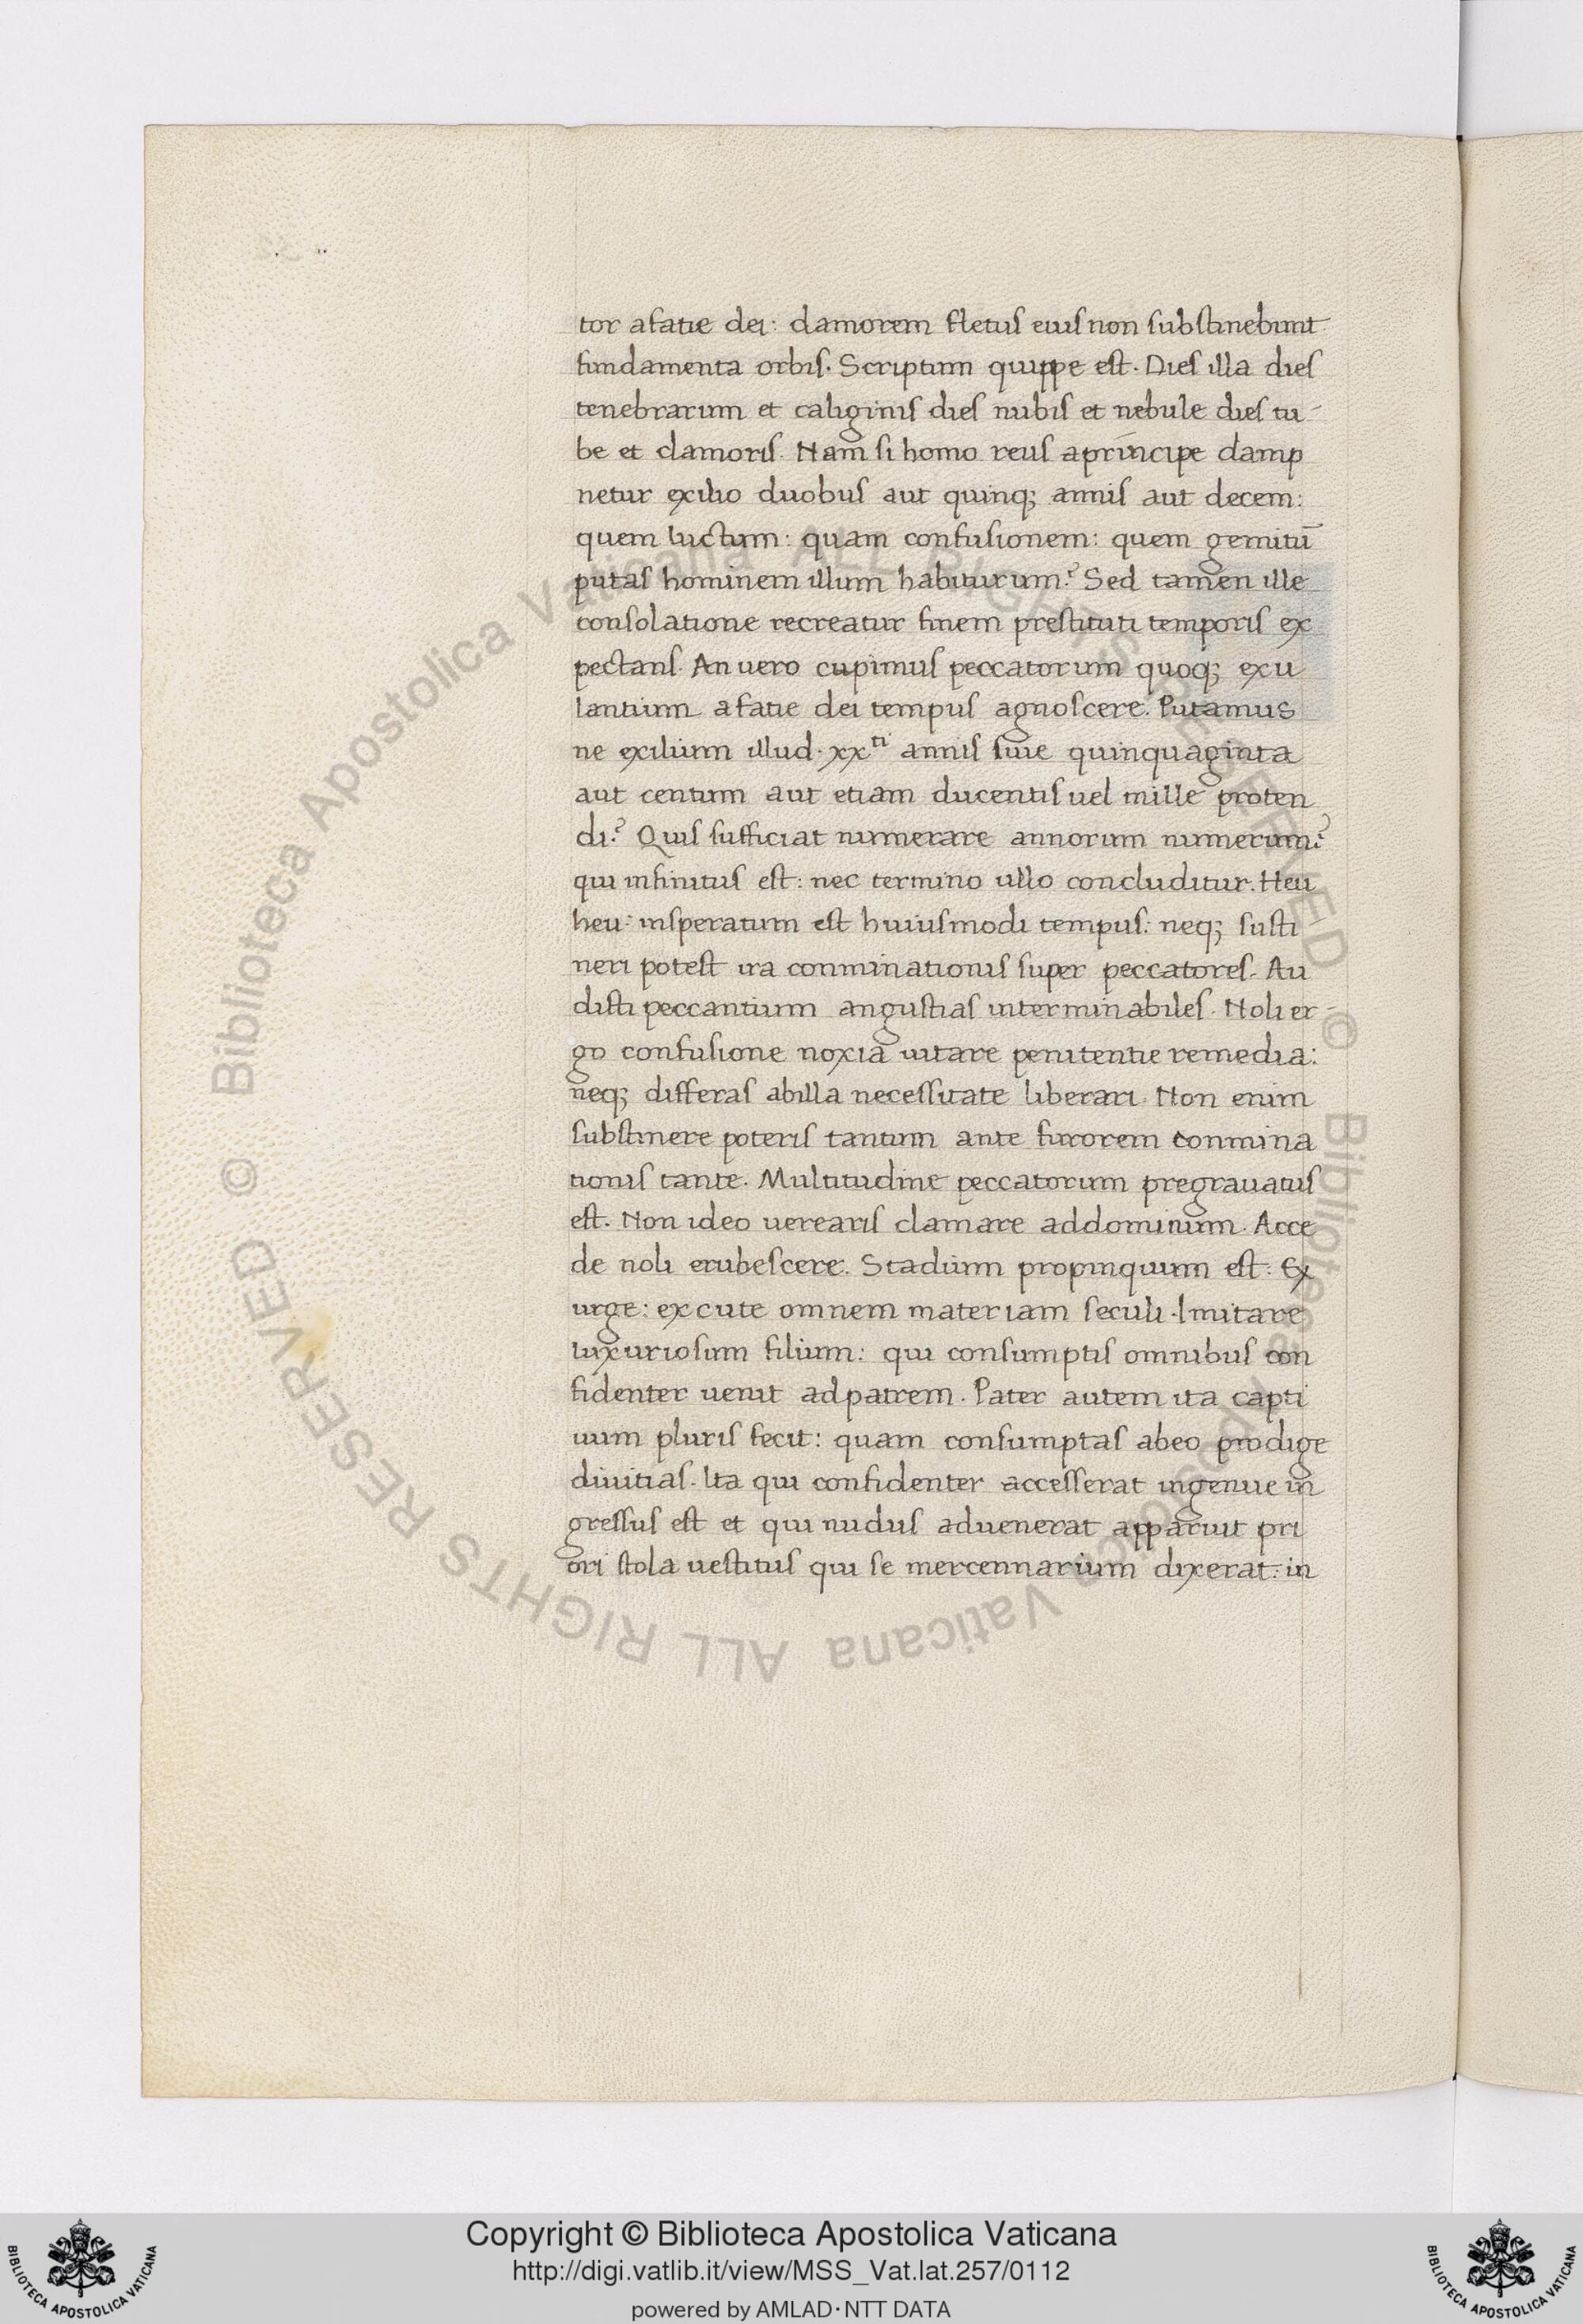 tor afatie dei: clamorem fletus eius non substinebunt
fundamenta orbis. Scriptum quippe est. Dies illa dies
tenebrarum et caliginis dies nubis et nebule dies tu-
be et clamoris. Nam si homo reus aprincipe damp
netur exilio duobus aut quinq; annis aut decem:
quem luctum: quam confusionem: quem gemitū
putas hominem illum habiturum? Sed tamen ille
consolatione recreatur finem prestituti temporis ex
pectans. An uero cupimus peccatorum quoq; exu
lantium afatie dei tempus agnoscere. Putamus
ne exilium illud. xxti annis siue quinquaginta
aut centum aut etiam ducentis uel mille proten
di? Quis sufficiat numerare annorum numerum?
qui infinitus est: nec termino ullo concluditur. Heu
heu insperatum est huiusmodi tempus: neq; susti-
neri potest ira conminationis super peccatores. Au
disti peccantium angustias interminabiles. Noli er-
go confusione noxia uitare penitentie remedia:
neq; differas abilla necessitate liberari. Non enim
substinere poteris tantum ante furorem conmina
tionis tante. Multitudine peccatorum pregrauatus
est. Non ideo uerearis clamare addominum. Acce
de noli erubescere. Stadium propinquum est: Ex
urge: excute omnem materiam seculi. Imitare
luxuriosum filium: qui consumptis omnibus con
fidenter uenit adpatrem. Pater autem ita capti
uum pluris fecit: quam consumptas abeo prodige
diuitias. Ita qui confidenter accesserat ingenue in
gressus est et qui nudus aduenerat apparuit pri
ori stola uestitus qui se mercennarium dixerat: in
© Biblioteca Apostolica Vaticana ALL RIGHTS RESERVED
© Biblioteca Apostolica Vaticana ALL RIGHTS RESERVED
Copyright © Biblioteca Apostolica Vaticana
http://digi.vatlib.it/view/MSS_Vat.lat.257/0112
powered by AMLAD·NTT DATA
BIBLIOTECA APOSTOLICA VATICANA
BIBLIOTECA APOSTOLICA VATICANA